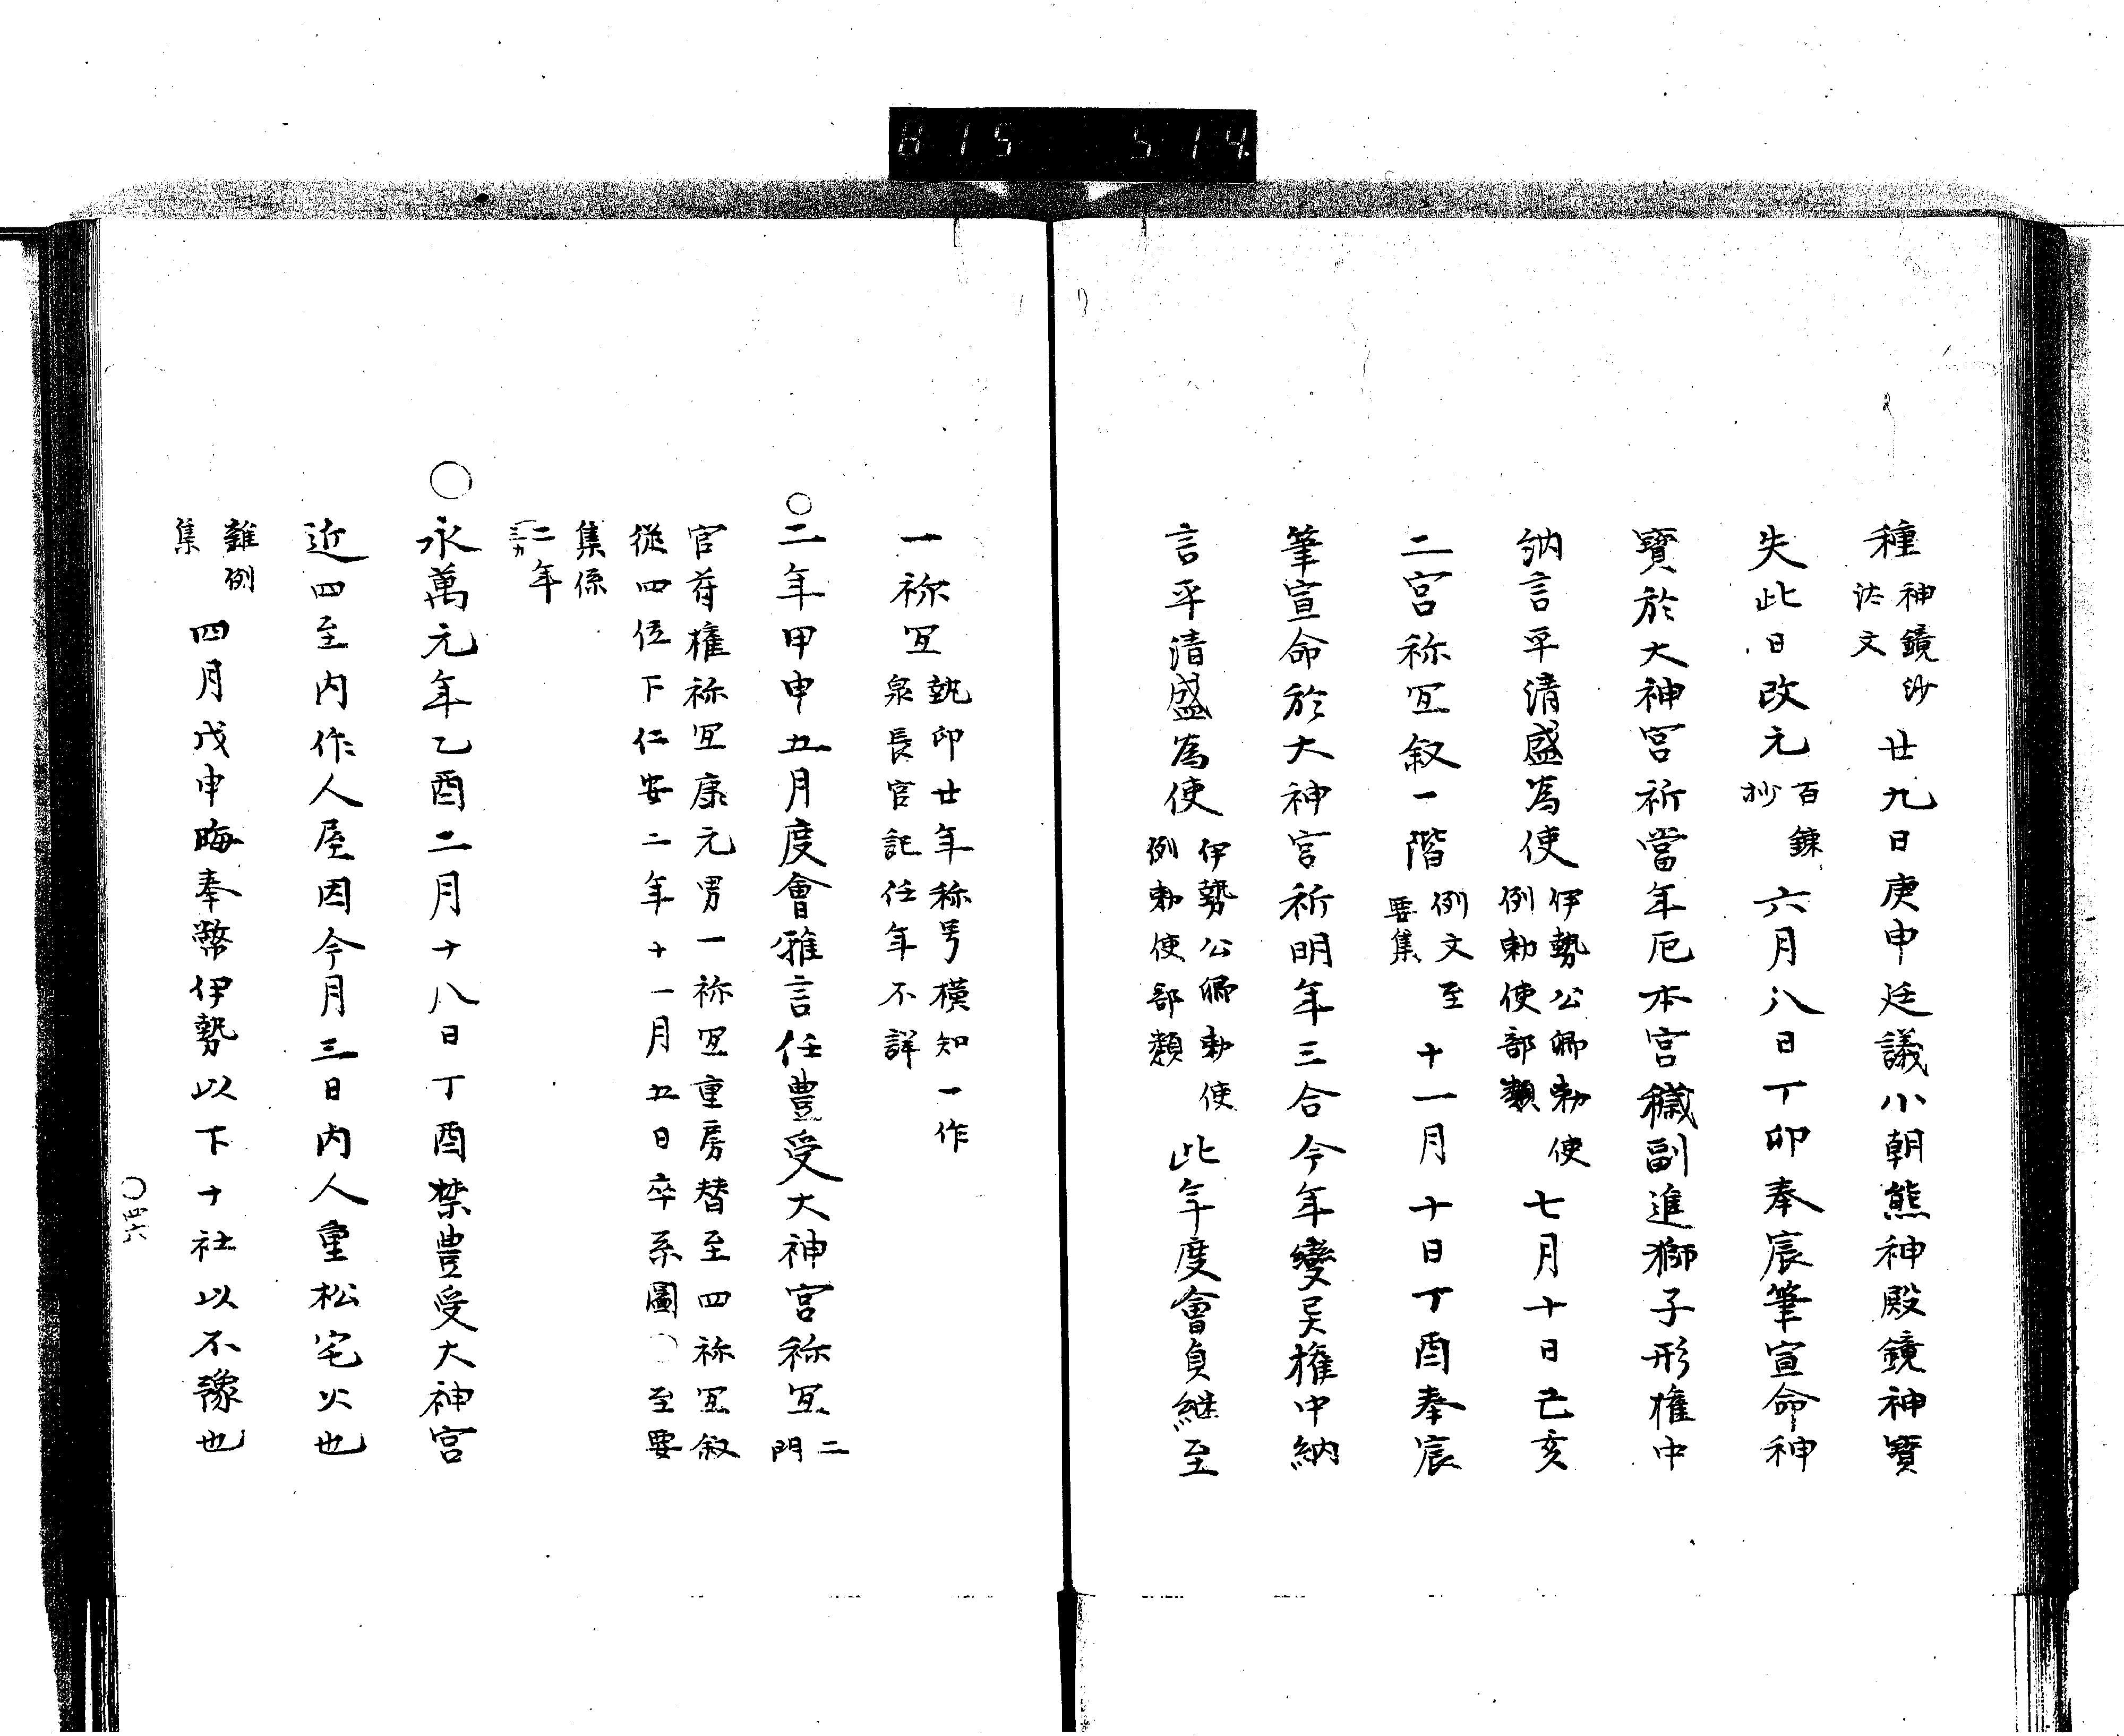 815 514
種神鏡沙
汰文廿九日庚申廷議小朝熊神殿鏡神寶
失此日改元百錬
抄六月八日丁卯奉宸筆宣命神
寶於大神宮祈當年厄本宮穢副進獅子形権中
納言平清盛為使伊勢公卿勅使
例勅使部類七月十日己亥
二宮祢冝叙一階例文至
要集十一月十日丁酉奉宸
筆宣命於大神宮祈明年三合今年變異権中納
言平清盛為使伊勢公卿勅使
例勅使部類此年度會貞継至
一祢冝執印廿年称号横知一作
泉長官記任年不詳
○二年甲申五月度會雅言任豊受大神宮祢冝二
門
官符権祢冝康元男一祢冝重房替至四祢冝叙
従四位下仁安二年十一月五日卒系圖○至要
集係
二年
○永萬元年乙酉二月十八日丁酉禁豊受大神宮
近四至内作人屋因今月三日内人重松宅火也
雜例
集四月戊申晦奉幣伊勢以下十社以不豫也
○四六